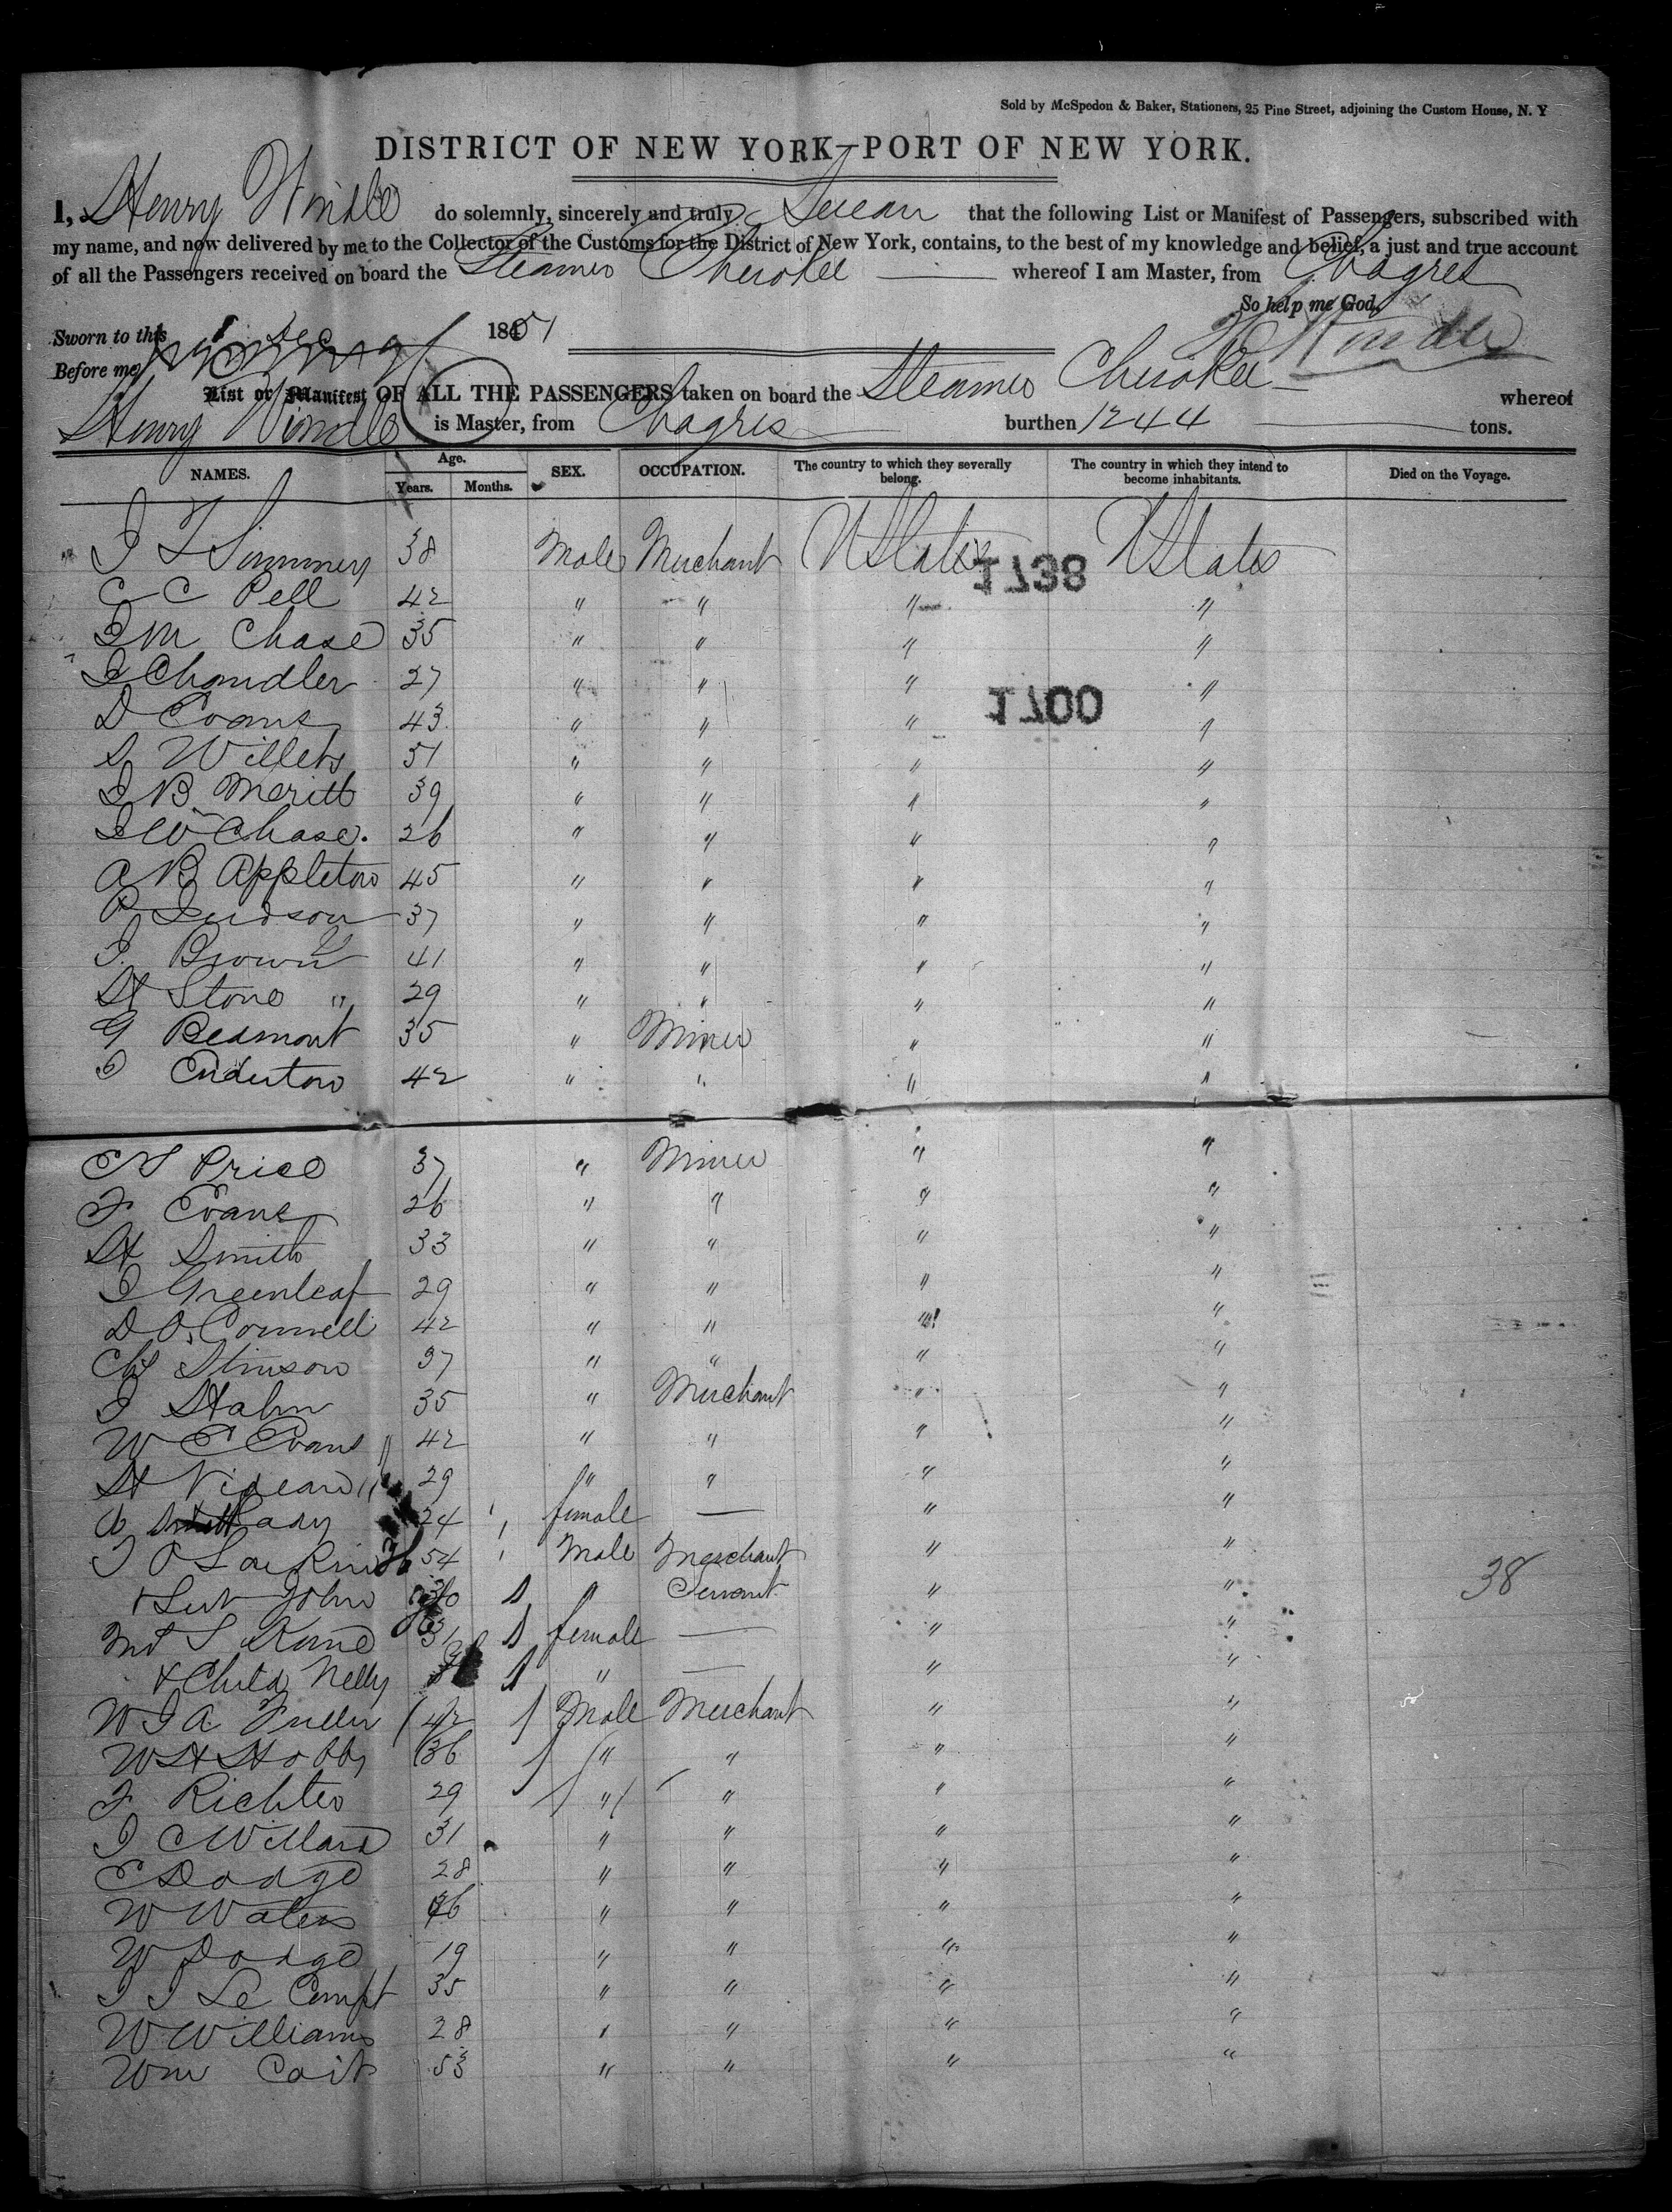 Sold by McSpedon & Baker, Stationers, 25 Pine Street, adjoining the Custom House, N. Y
DISTRICT OF NEW YORK—PORT OF NEW YORK.
I, Henry Windle do solemnly, sincerely and truly Swear that the following List or Manifest of Passengers, subscribed with
my name, and now delivered by me to the Collector of the Customs for the District of New York, contains, to the best of my knowledge and belief, a just and true account
of all the Passengers received on board the Steamer Cherokee whereof I am Master, from Chagres
So help me God.
H Windle
Sworn to this Dec 1851
Before me
List or Manifest OF ALL THE PASSENGERS taken on board the Steamer Cherokee whereof
Henry Windle is Master, from Chagres burthen 1244 tons.
NAMES. Age. Years. Months. SEX. OCCUPATION. The country to which they severally belong. The country in which they intend to become inhabitants. Died on the Voyage.
38 Male Merchant U States U States
1738
C C Pell 42 " " " "
I M Chase 35 " " " "
I Chandler 27 " " " "
1700
D Evans 43 " " " "
S Willets 51 " " " "
I B Meritt 39 " " " "
I W Chase. 26 " " " "
A B Appleton 45 " " " "
P Judson 37 " " " "
I. Brown 41 " " " "
H Stone " 29 " " " "
G Beamont 35 " Miner " "
42 " " " "
C S Price 37 " Miner " "
F Evans 26 " " " "
H Smith 33 " " " "
I Greenleaf 29 " " " "
D O, Connell 42 " " " "
Chs Stinson 37 " " " "
I Hahn 35 " Merchant " "
W C Evans 42 " " " "
H 29 " " " "
Lady 24 female — " "
54 Male Merchant " "
& Sert John 30 " Servant " " 38
Mrs S Kane 31 female — " "
& Child Nelly " — " "
W I A Fuller 42 Male Merchant " "
W H Hobby 36 " " " "
F Richter 29 " " " "
I C Willard 31 " " " "
E Dodge 28 " " " "
W Waters " " " "
W Dodge 19 " " " "
I I Le Compt 35 " " " "
W Williams 28 " " " "
Wm Coit 53 " " " "